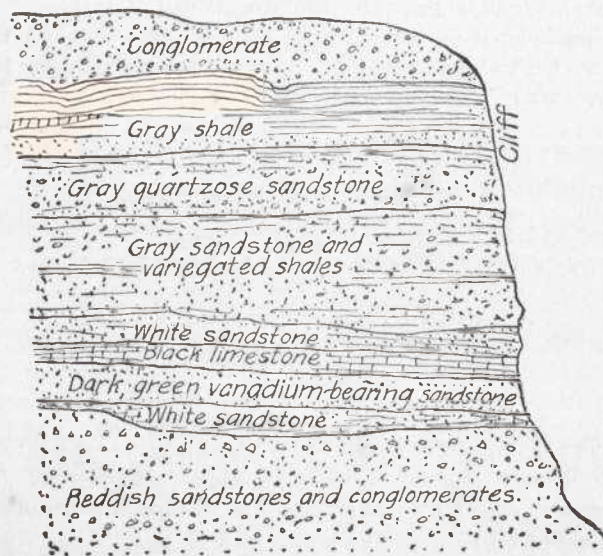 Conglomerate
Cliff
Gray shale
Gray quartzose sandstone
Gray sandstone and
variegated shales
White sandstone
Black limestone
Dark green vanadium-bearing sandstone
White sandstone
Reddish sandstones and conglomerates.